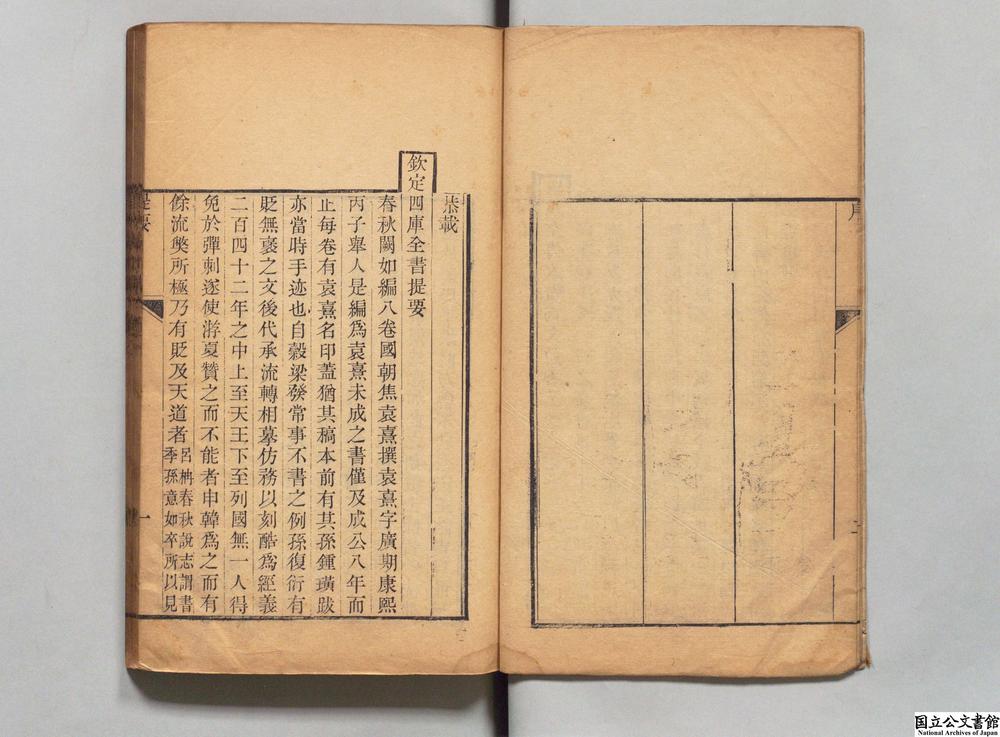 恭載
欽定四庫全書提要
春秋闕如編八卷國朝焦袁熹撰袁熹字廣期康熙
丙子舉人是編爲袁熹未成之書僅及成公八年而
止每卷有袁熹名印蓋猶其稿本前有其孫鍾璜跋
亦當時手迹也自穀梁發常事不書之例孫復衍有
貶無襃之文後代承流轉相摹仿務以刻酷爲經義
二百四十二年之中上至天王下至列國無一人得
免於彈刺遂使游夏贊之而不能者申韓爲之而有
餘流獘所極乃有貶及天道者呂柟春秋說志謂書
季孫意如卒所以見
提要
一
国立公文書館
National Archives of Japan